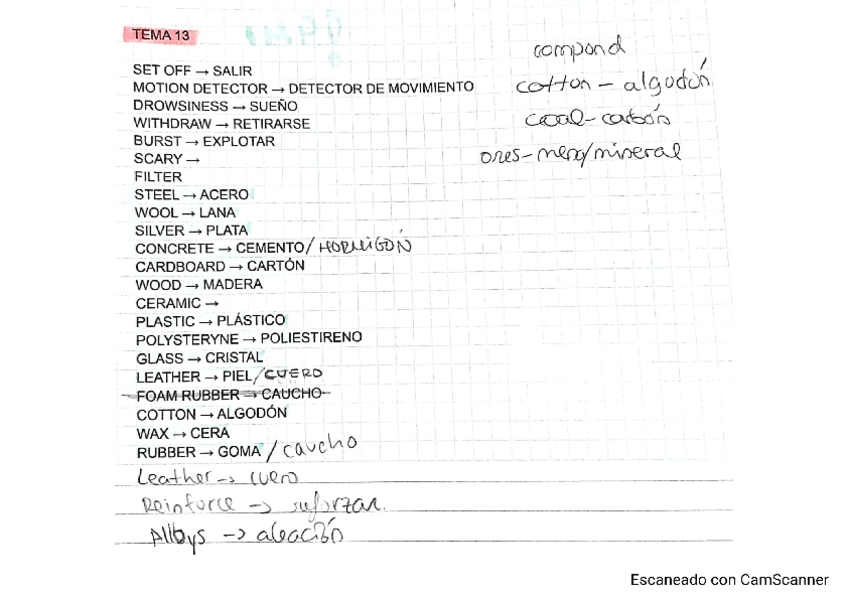 TEMA 13
SET OFF → SALIR
MOTION DETECTOR → DETECTOR DE MOVIMIENTO
DROWSINESS → SUEÑO
WITHDRAW → RETIRARSE
BURST → EXPLOTAR
SCARY →
FILTER
STEEL → ACERO
WOOL → LANA
SILVER → PLATA
CONCRETE → CEMENTO/HORMIGÓN
CARDBOARD → CARTÓN
WOOD → MADERA
CERAMIC →
PLASTIC → PLÁSTICO
POLYSTERYNE → POLIESTIRENO
GLASS → CRISTAL
LEATHER → PIEL/CUERO
FOAM RUBBER → CAUCHO
COTTON → ALGODÓN
WAX → CERA
RUBBER → GOMA / caucho
Leather → cuero
Reinforce → reforzar.
Alloys → aleación
compond
cotton - algodón
coal - carbón
ores - /mineral
Escaneado con CamScanner